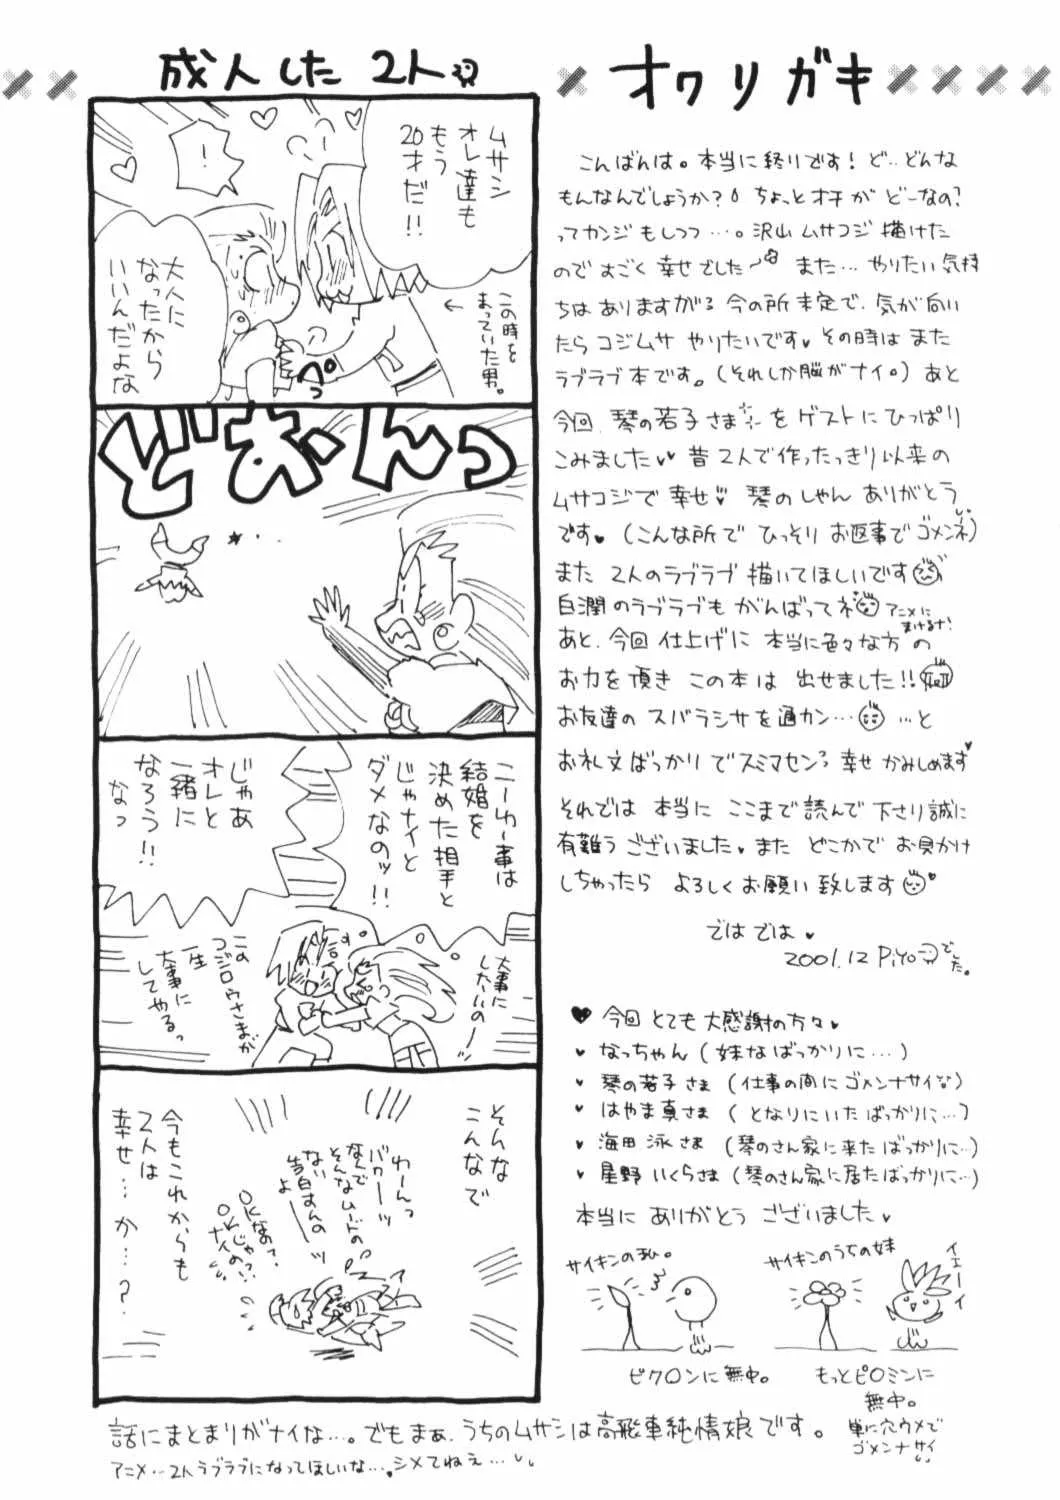 成人した 2人
ムサシ
オレ達も
もう
20才だ!!
!
この時を
まっていた男。
大人に
なったから
いいんだよな
ペっ
どおーんっ
こーゆー事は
結婚を
決めた相手と
じゃナイと
ダメなのッ!!
じゃあ
オレと
一緒に
なろう!!
なっ
大事に
したいのー
この
コジロウさまが
一生
大事に
してやるっ
そんな
こんなで
わーんっ
バカーーッ
なんで
そんなムードの
ない告白すんの
よーーッ
OKなの?
OKじゃ
ナイの!?
今もこれからも
2人は
幸せ…か…?
話にまとまりがナイな…。でもまぁ、うちのムサシは高飛車純情娘です。
アニメ…2人ラブラブになってほしいな…。シメてねえ…
オワリガキ
こんばんは。本当に終りです! ど…どんな
もんなんでしょうか? ちょっとオチが どーなの?
ってカンジもしつつ…。沢山ムサコジ描けた
のですごく幸せでした〜 また…やりたい気持
ちはありますがネ 今の所未定で、気が向い
たらコジムサ やりたいです♥ その時は また
ラブラブ本です。(それしか脳がナイ。) あと
今回、琴の若子さまを ゲストに ひっぱり
こみました♥♥ 昔2人で作ったっきり以来の
ムサコジで 幸せ♥ 琴のしゃん ありがとう
です♥ (こんな所で ひっそり お返事で ゴメンネ)
また 2人のラブラブ 描いてほしいです
白潤のラブラブも がんばってネ アニメに
まけるな!
あと、今回仕上げに 本当に色々な方の
お力を頂き この本は 出せました!!
お友達の スバラシサを通カン… …と
お礼文ばっかりでスミマセン 幸せ かみしめます♥
それでは 本当に ここまで読んで下さり誠に
有難うございました。また どこかで お見かけ
しちゃったら よろしくお願い致します♥
ではでは♥
2001.12 Piyoでした。
♥ 今回 とても 大感謝の方々♥
♥ なっちゃん (妹なばっかりに…)
♥ 琴の若子さま (仕事の間にゴメンナサイ)
♥ はやま真さま (となりにいたばっかりに…)
♥ 海田 泳さま (琴のさん家に来たばっかりに…)
♥ 星野 いくらさま (琴のさん家に居たばっかりに…)
本当に ありがとう ございました♥
サイキンの私。
ピクOンに無中。
サイキンのうちの妹
イエーイ
もっとピOミンに
無中。
単に穴ウメで
ゴメンナサイ